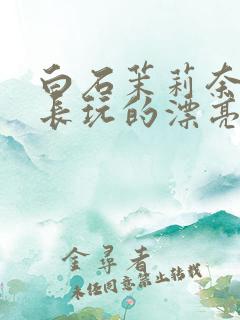 白石茉莉奈
長玩的漂亮
金尋者
未经同意禁止转载